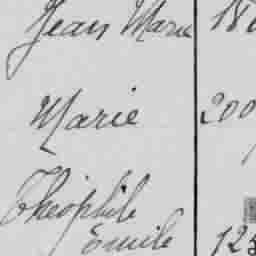 Jean Marie
Marie 200
Théophile
Emile 125